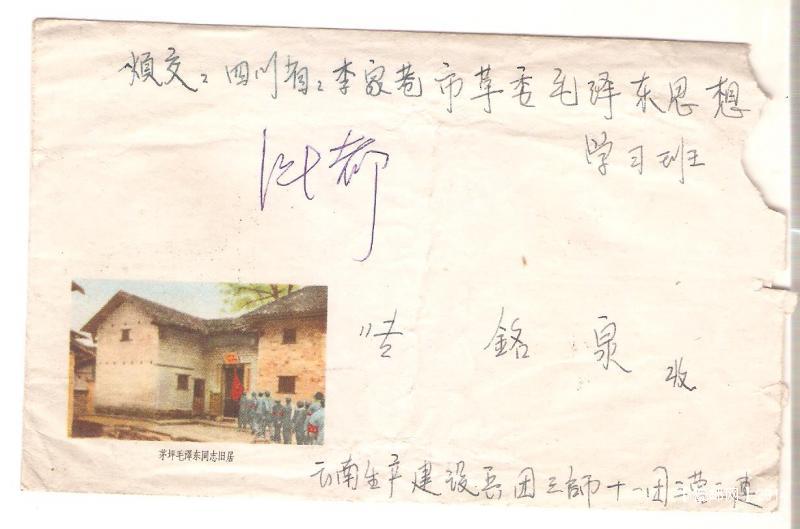 烦交：四川省：李家巷市革委毛泽东思想
学习班
成都
铭泉
收
茅坪毛澤东同志旧居
云南生产建设兵团三師十一团三营二連